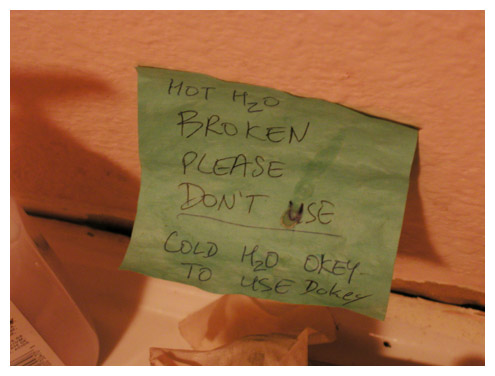 HOT H₂O
BROKEN
PLEASE
DON'T USE
COLD H₂O OKEY-
TO USE DOKEY